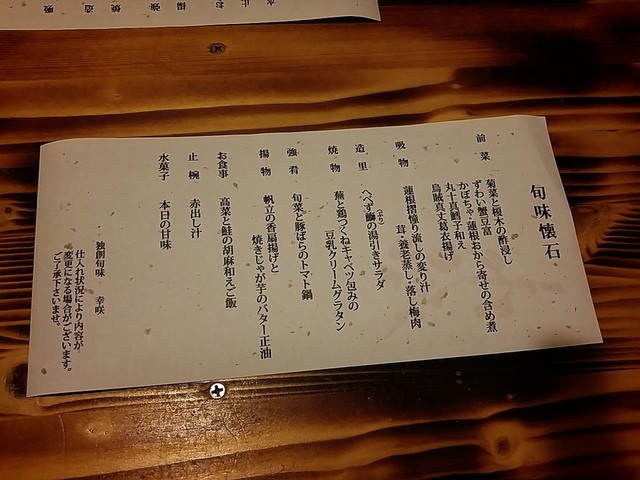 旬味懐石
前菜 菊菜と榎木の酢浸し
ずわい蟹豆富
かぼちゃ・蓮根おから寄せの含め煮
丸十真鱈子和え
烏賊真丈葛衣揚げ
吸物 蓮根摺り流しの変り汁
茸・養老蒸し・落し梅肉
造里 へべず鰤の湯引きサラダ
(ぶり)
焼物 蕪と鶏つくねキャベツ包みの
豆乳クリームグラタン
強肴 旬菜と豚ばらのトマト鍋
揚物 帆立の香扇揚げと
焼きじゃが芋のバター正油
お食事 高菜と鮭の胡麻和えご飯
止椀 赤出し汁
水菓子 本日の甘味
独創旬味 幸咲
仕入れ状況により内容が
変更になる場合がございます。
ご了承下さいませ。